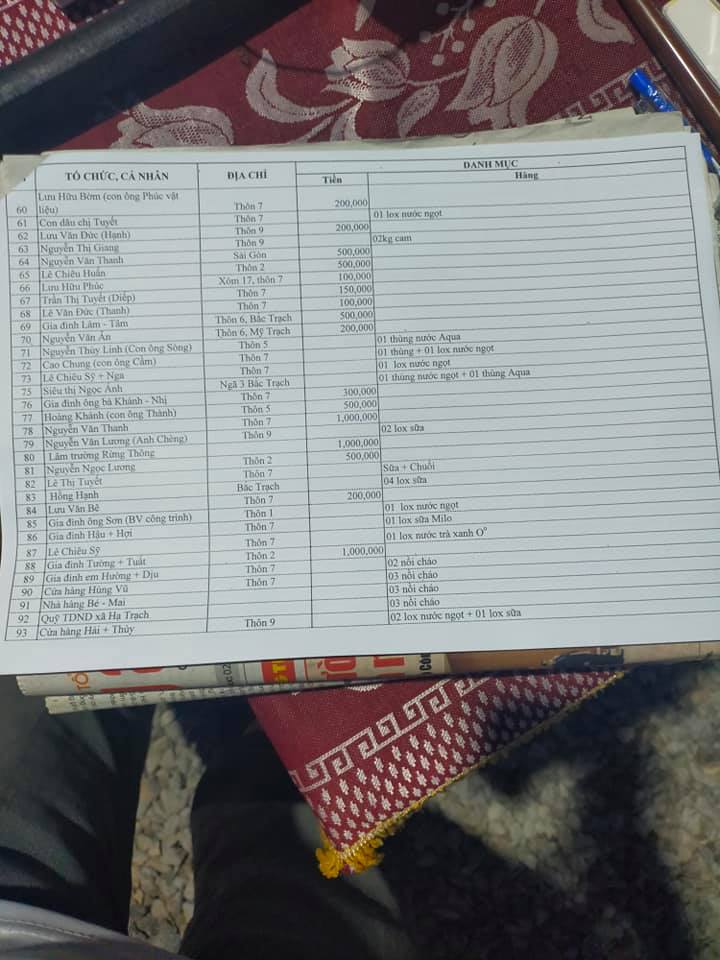 TỔ CHỨC, CÁ NHÂN ĐỊA CHỈ DANH MỤC
Tiền Hàng
60 Lưu Hữu Bờm (con ông Phúc vật
liệu) Thôn 7 200,000
61 Con dâu chị Tuyết Thôn 7 01 lox nước ngọt
62 Lưu Văn Đức (Hạnh) Thôn 9 200,000
63 Nguyễn Thị Giang Thôn 9 02kg cam
64 Nguyễn Văn Thanh Sài Gòn 500,000
65 Lê Chiêu Huấn Thôn 2 500,000
66 Lưu Hữu Phúc Xóm 17, thôn 7 100,000
67 Trần Thị Tuyết (Diệp) Thôn 7 150,000
68 Lê Văn Đức (Thanh) Thôn 7 100,000
69 Gia đình Lâm - Tâm Thôn 6, Bắc Trạch 500,000
70 Nguyễn Văn Ân Thôn 6, Mỹ Trạch 200,000
71 Nguyễn Thùy Linh (Con ông Sòng) Thôn 5 01 thùng nước Aqua
72 Cao Chung (con ông Cầm) Thôn 7 01 thùng + 01 lox nước ngọt
73 Lê Chiêu Sỹ + Nga Thôn 7 01 lox nước ngọt
75 Siêu thị Ngọc Ánh Ngã 3 Bắc Trạch 01 thùng nước ngọt + 01 thùng Aqua
76 Gia đình ông bà Khánh - Nhị Thôn 7 300,000
77 Hoàng Khánh (con ông Thành) Thôn 5 500,000
78 Nguyễn Văn Thanh Thôn 7 1,000,000
79 Nguyễn Văn Lương (Anh Chèng) Thôn 9 02 lox sữa
80 Lâm trường Rừng Thông 1,000,000
81 Nguyễn Ngọc Lương Thôn 2 500,000
82 Lê Thị Tuyết Thôn 7 Sữa + Chuối
83 Hồng Hạnh Bắc Trạch 04 lox sữa
84 Lưu Văn Bê Thôn 7 200,000
85 Gia đình ông Sơn (BV công trình) Thôn 1 01 lox nước ngọt
86 Gia đình Hậu + Hợi Thôn 7 01 lox sữa Milo
87 Lê Chiêu Sỹ Thôn 7 01 lox nước trà xanh O°
88 Gia đình Tường + Tuất Thôn 2 1,000,000
89 Gia đình em Hường + Dịu Thôn 7 02 nồi cháo
90 Cửa hàng Hùng Vũ Thôn 7 03 nồi cháo
91 Nhà hàng Bé - Mai 03 nồi cháo
92 Quỹ TDND xã Hạ Trạch 03 nồi cháo
93 Cửa hàng Hải + Thủy Thôn 9 02 lox nước ngọt + 01 lox sữa